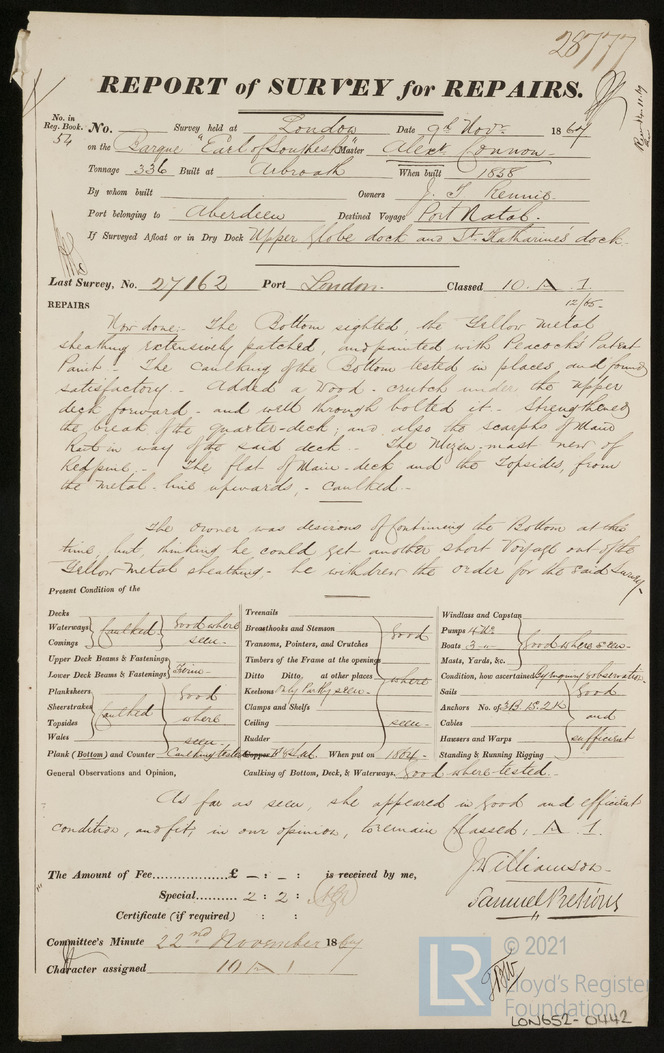 28777
REPORT of SURVEY for REPAIRS.
No. in Reg. Book. 54 No. Survey held at London Date 9th Novr 1867
on the Barque "Earl of Southesk" Master Alexr Connon
Tonnage 336 Built at Arbroath When built 1858
By whom built Owners J. T. Rennie
Port belonging to Aberdeen Destined Voyage Port Natal.
If Surveyed Afloat or in Dry Dock Upper Globe dock and St. Katharine's dock.
Last Survey, No. 27162 Port London. Classed 10 A 1
12/65
REPAIRS
Now done:- The Bottom sighted, the Yellow Metal
sheathing extensively patched, and painted with Peacock's Patent
Paint - The Caulking of the Bottom tested in places, and found
satisfactory - Added a Wood crutch under the upper
deck forward - and well through bolted it - Strengthened
the break of the quarter-deck; and also the scarphs of Main
Rail in way of the said deck - The Mizen-mast new of
Red pine - The flat of Main-deck and the Topsides, from
the Metal-line upwards, - Caulked -
The owner was desirous of Continuing the Bottom at this
time, but, thinking he could get another short Voyage out of the
Yellow Metal sheathing - he withdrew the order for the said Survey -
Present Condition of the
Decks
Waterways
Comings
caulked
Good where
seen -
Upper Deck Beams & Fastenings
Lower Deck Beams & Fastenings
Planksheers
Sheerstrakes
Topsides
Wales
Caulked
Good
where
seen -
Plank (Bottom) and Counter Caulking tested
General Observations and Opinion,
Treenails
Breasthooks and Stemson
Transoms, Pointers, and Crutches
Timbers of the Frame at the openings
Ditto Ditto at other places
Keelsons Only Partly seen -
Clamps and Shelfs
Ceiling
Rudder
Good
where
seen -
Copper When put on 1864
Caulking of Bottom, Deck, & Waterways, Good where tested -
Windlass and Capstan
Pumps
Boats 3
Masts, Yards, &c.
Good where seen -
Condition, how ascertained By inquiry & observation
Sails
Anchors No. of 3B. 1S. 2K
Cables
Hawsers and Warps
Standing & Running Rigging
Good
and
sufficient
As far as seen, she appeared in good and efficient
condition, and fit, in our opinion, to remain Classed: A 1.
The Amount of Fee............... £ - : - : is received by me,
Special.......... 2 : 2 :
Certificate (if required) : :
J. Williamson -
Samuel Pretious
Committee's Minute 22nd November 1867
Character assigned 10 A 1
© 2021
LR
Lloyd's Register
Foundation
LON652-0442